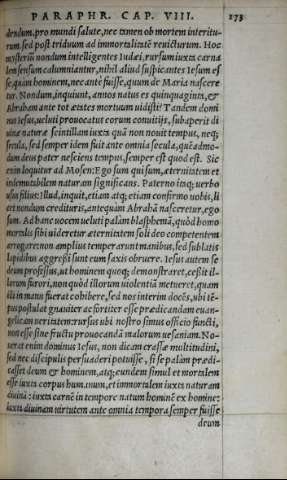 PARAPHR. CAP. VIII. 273
dendum, pro mundi salute, nec tamen ob mortem interitu-
rum, sed post triduum ad immortalitatē reuicturum. Hoc
mysterii nondum intelligentes Iudæi, rursum iuxta carna
lem sensum calumniantur, nihil aliud suspicantes Iesum es
se, quàm hominem, nec antè fuisse, quum de Maria nascere
tur. Nondum, inquiunt, annos natus es quinquaginta, &
Abraham ante tot ætates mortuum uidisti? Tandem domi
nus Iesus, ueluti prouocatus eorum conuitijs, subaperit di
uinæ naturæ scintillam iuxta quā non nouit tempus, neq;
secula, sed semper idem fuit ante omnia secula, quēadmo-
dum deus pater nesciens tempus, semper est quod est. Sic
enim loquitur ad Mosen: Ego sum qui sum, æternitatem et
indemutabilem naturam significans. Paterno itaq; uerbo
usus filius: Illud, inquit, etiam atq; etiam confirmo uobis, li
cet nondum credituris, antequàm Abrahā nasceretur, ego
sum. Ad hanc uocem ueluti palàm blasphemā, quòd homo
mortalis sibi uideretur æternitatem soli deo competentem
arrogare: non amplius temperarunt manibus, sed sublatis
lapidibus aggreßi sunt eum saxis obruere. Iesus autem se
deum professus, ut hominem quoq; demonstraret, ceßit il-
lorum furori, non quòd illorum uiolentiā metueret, quam
illi in manu fuerat cohibere, sed nos interim docēs, ubi tē-
pus postulat gnauiter ac fortiter esse prædicandam euan-
gelicam ueritatem: rursus ubi nostro simus officio functi,
non esse sine fructu prouocandā malorum uesaniam. No-
uerat enim dominus Iesus, non dicam crassæ multitudini,
sed nec discipulis persuaderi potuisse, si se palàm prædi-
casset deum & hominem, atq; eundem simul et mortalem
esse iuxta corpus humanum, et immortalem iuxta naturam
diuinā: iuxta carnē in tempore natum hominē ex homine:
iuxta diuinam uirtutem ante omnia tempora semper fuisse
deum